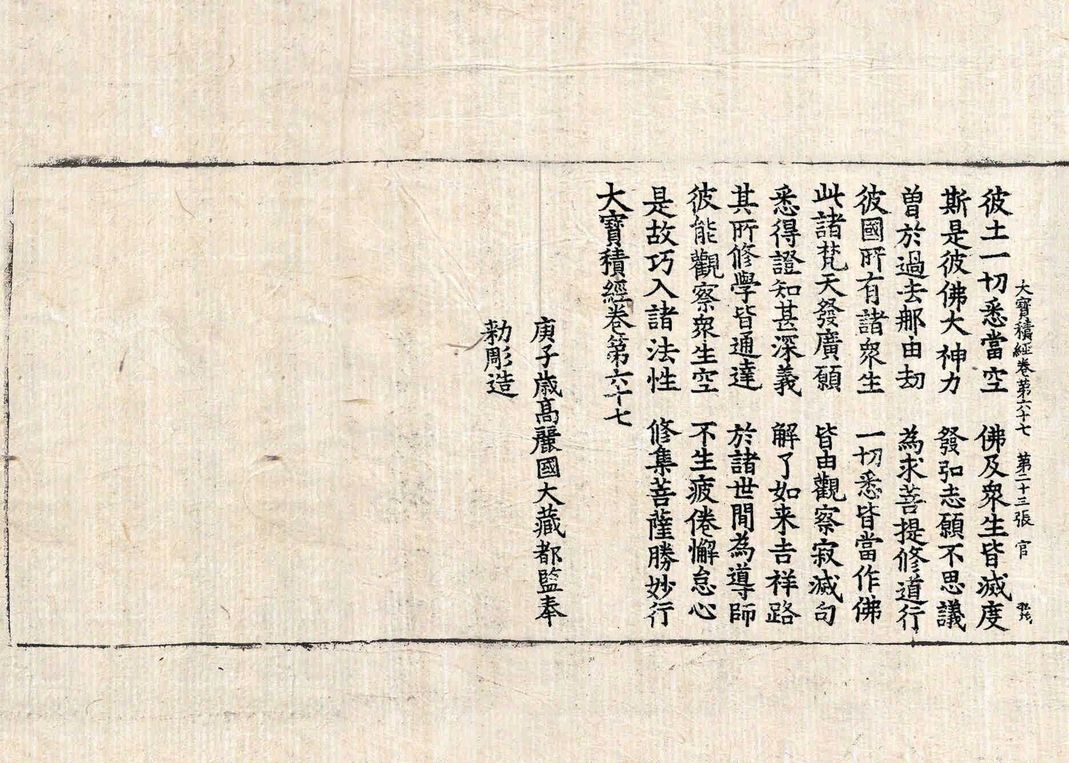 大寶積經卷第六十七 第二十三張 官
彼土一切悉當空 佛及衆生皆滅度
斯是彼佛大神力 發弘志願不思議
曽於過去那由劫 為求菩提修道行
彼國所有諸衆生 一切悉皆當作佛
此諸梵天發廣願 皆由觀察寂滅句
悉得證知甚深義 解了如来吉祥路
其所修學皆通達 於諸世閒為導師
彼能觀察衆生空 不生疲倦懈怠心
是故巧入諸法性 修集菩薩勝妙行
大寶積經卷第六十七
庚子歳髙麗國大藏都監奉
勑彫造